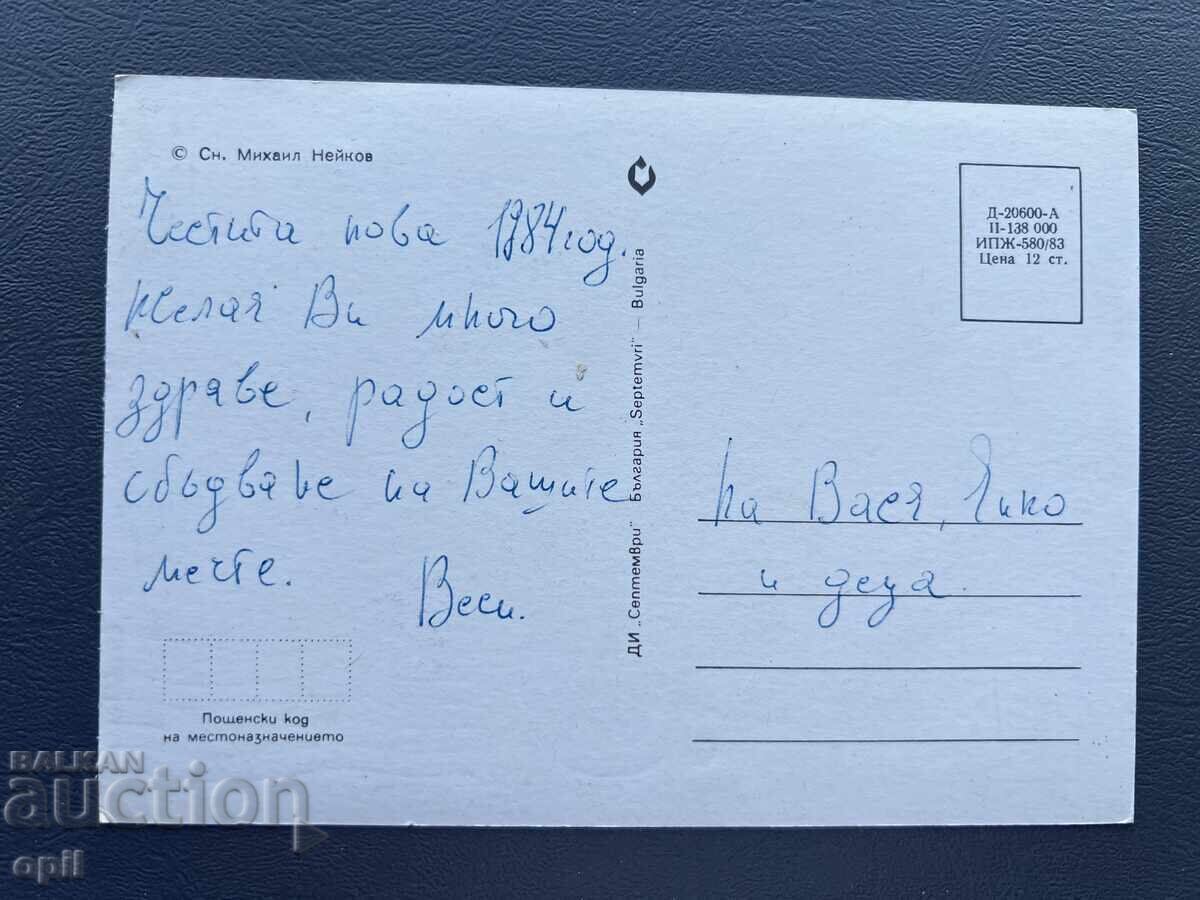 © Сн. Михаил Нейков
Честита нова 1984 год.
Желая Ви много
здраве, радост и
сбъдване на Вашите
мечте.
Веси.
Пощенски код
на местоназначението
ДИ „Септември“ България „Septemvri“ – Bulgaria
Д-20600-А
II-138 000
ИПЖ-580/83
Цена 12 ст.
На Вася, Гико
и деца.
BALKAN
auction
opil